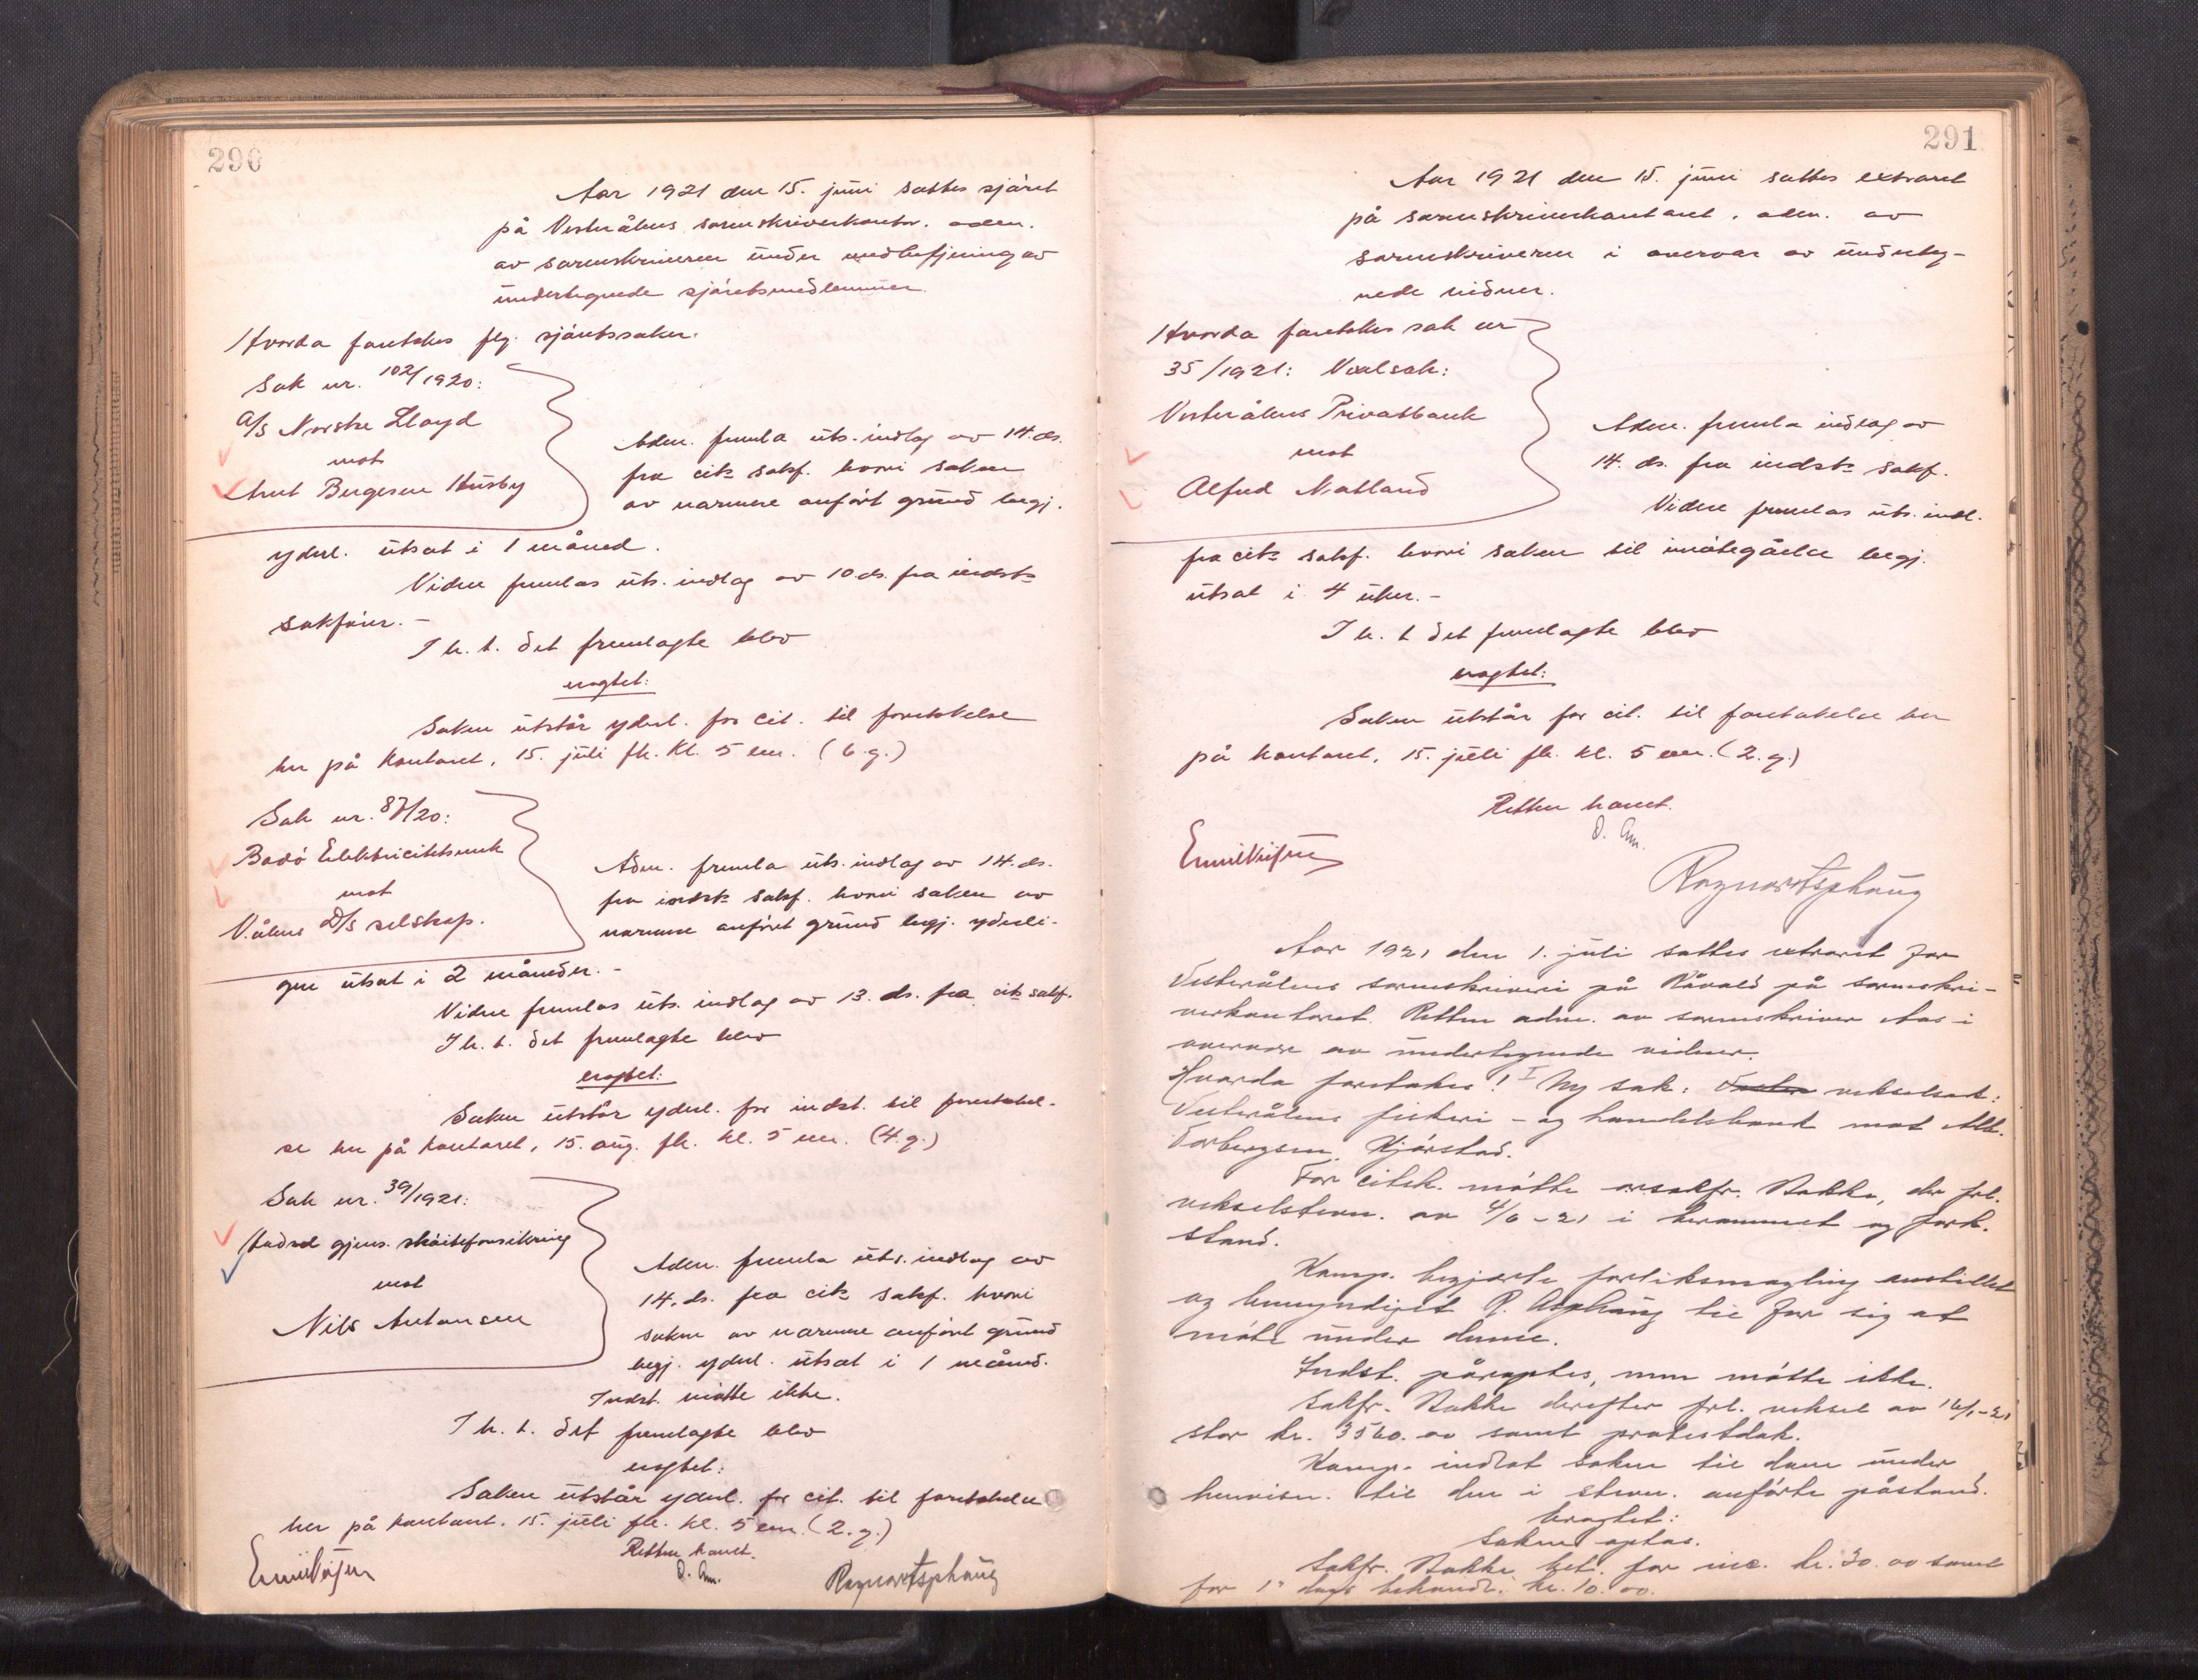 290
Aar 1921 den 15. juni sattes sjøret
på Vesterålens sorenskriverkontor. adm.
av sorenskriveren under medbetjening av
undertegnede sjøretsmedlemmer.
Hvorda foretokes flg. sjøretssaker.
Sak nr. 102/1920:
A/S Norske Lloyd
mot
Arnt Bergesen Husby
Adm. fremla uts. indlag av 14. ds.
fra citk sakf. hvori saken
av nærmere anført grund begj.
yderl. utsat i 1 måned.
Videre fremlas uts. indlag av 10. ds. fra indstk
sakfører. -
I h. t. det fremlagte blev
eragtet:
Saken utstår yderl. for cit. til foretakelse
her på kontoret, 15. juli fk. kl. 5 em. (6. g.)
Sak nr. 87/20:
Bodø Elektricitetsverk
mot
V.ålens D/S selskap.
Adm. fremla uts. indlag av 14. ds.
fra indstk sakf. hvori saken av
nærmere anført grund begj. yderli-
gere utsat i 2 måneder. -
Videre fremlas uts. indlag av 13. ds. fra citk sakf.
I h. t. det fremlagte blev
eragtet:
Saken utstår yderl. for indst. til foretakel-
se her på kontoret, 15. aug. fk. kl. 5 em. (4. g.)
Sak nr. 39/1921:
Hadsel gjens. skøiteforsikring
mot
Nils Antonsen
Adm. fremla uts. indlag av
14. ds. fra citk sakf. hvori
saken av nærmere anført grund
begj. yderl. utsat i 1 måned.
Indst. møtte ikke.
I h. t. det fremlagte blev
eragtet:
Saken utstår yderl. for cit. til foretakelse
her på kontoret, 15. juli fk. kl. 5 em. (2. g.)
Retten hævet.
O. Aas.
Ragnar Asphaug
291
Aar 1921 den 15. juni sattes extraret
på sorenskriverkontoret. adm. av
sorenskriveren i overvær av underteg-
nede vidner.
Hvorda foretokes sak nr
35/1921: Vexelsak:
Vesterålens Privatbank
mot
Alfred Natland
Adm. fremla indlag av
14. ds. fra indstk sakf.
Videre fremlas uts. indl.
fra citk sakf. hvori saken til imøtegåelse begj.
utsat i 4 uker. -
I h. t. det fremlagte blev
eragtet:
Saken utstår for cit. til foretakelse her
på kontoret, 15. juli fk. kl. 5 em. (2. g.)
Retten hævet.
O. Aas.
Ragnar Asphaug
Aar 1921 den 1. juli sattes extraret for
Vesterålens sorenskriveri på Råvald på sorenskri-
verkontoret. Retten adm. av sorenskriver Aas i
overvær av undertegnede vidner.
Hvorda foretokes! I Ny sak: vekselsak:
Vesterålens fiskeri- og handelsbank mot Alb.
Torbergsen, Kjørstad.
For citk. møtte orsakfr. Bakke, der frl.
vekselstevn. av 4/6-21 i berammet og fork.
stand.
Komp. begjærte forliksmægling anstillet
og bemyndiget R. Asphaug til for sig at
møte under denne.
Indst. påroptes, men møtte ikke.
Sakfr. Bakke derefter frl. veksel av 16/1-21
stor kr. 3560.00 samt protestdok.
Komp. indlot saken til dom under
henvisn. til den i stevn. anførte påstand.
Eragtet:
Saken optas.
Sakfr. Bakke bet. for inc. kr. 30.00 samt
for 1. dags behandl. kr. 10.00.